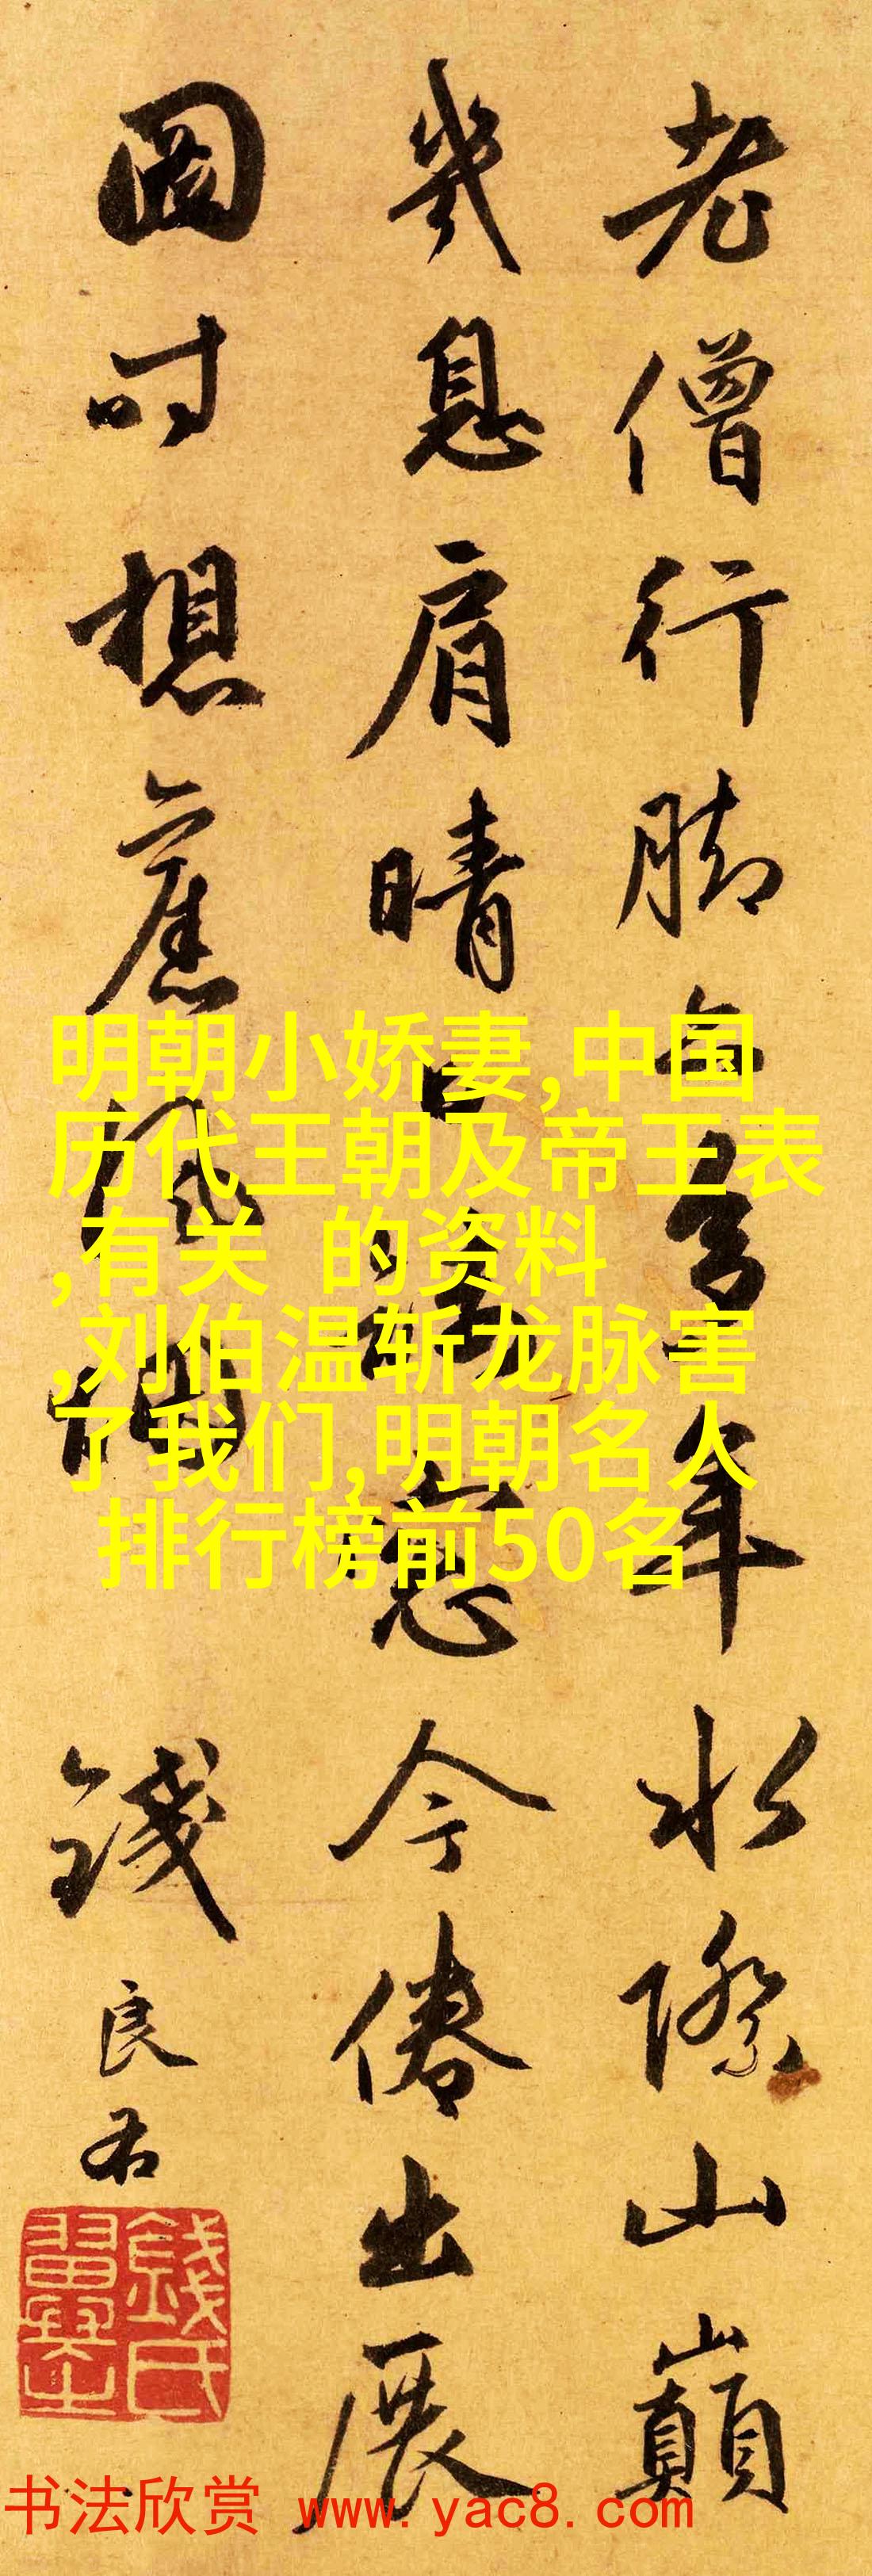 老僧行脚每年水際山巔
幾息肩晴日窓今倦出展
圖時想舊風烟
錢良右
錢氏翼之
明朝小娇妻,中国
历代王朝及帝王表
,有关 的资料
,刘伯温斩龙脉害
了我们,明朝名人
排行榜前50名
书法欣赏 www.yac8.com